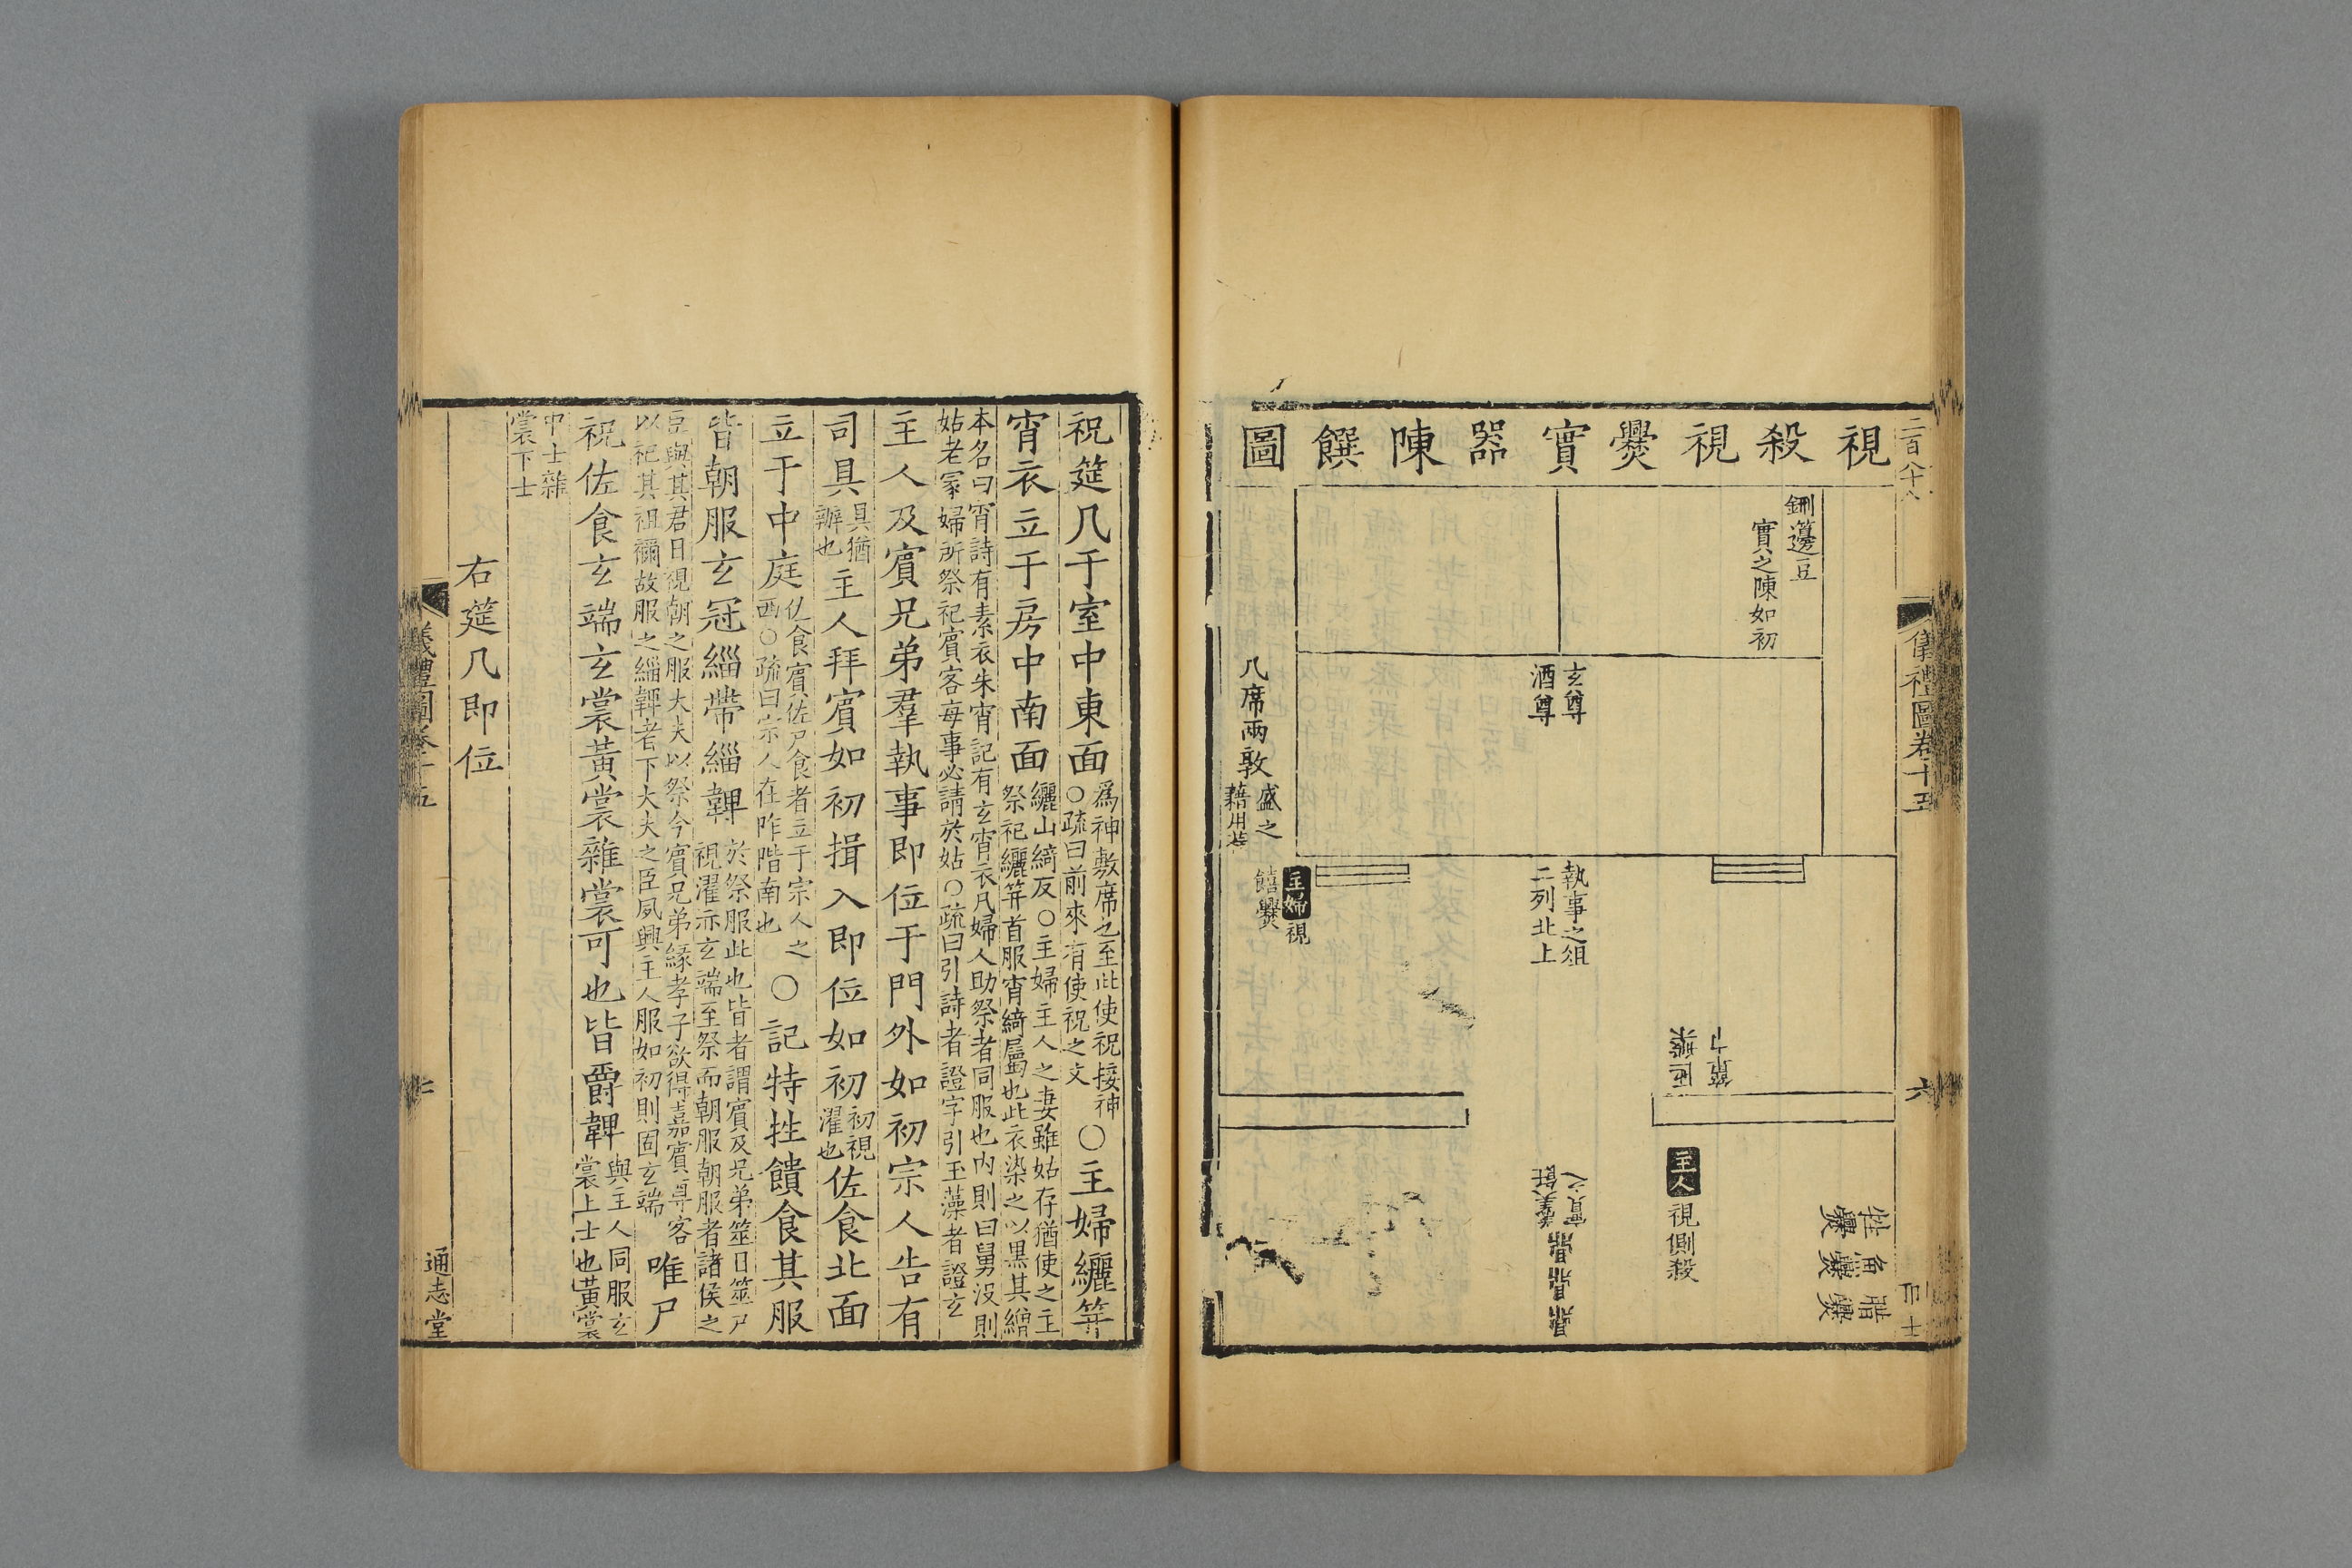 視殺視爨實器陳饌圖
鉶籩豆
實之陳如初
玄尊
酒尊
几席兩敦
盛之
藉用萑
主婦視
饎爨
執事之俎
二列北上
簞巾
匜槃
主人視側殺
牲爨
魚爨
腊爨
實之
羹飪
鼎鼎鼎
儀禮圖卷十五
六
祝筵几于室中東面
爲神敷席也至此使祝接神
○疏曰前來有使祝之文
○主婦纚笄
宵衣立于房中南面
纚山綺反○主婦主人之妻雖姑存猶使之主
祭祀纚笄首服宵綺屬也此衣染之以黑其繒
本名曰宵詩有素衣朱宵記有玄宵衣凡婦人助祭者同服也內則曰舅没則
姑老冢婦所祭祀賓客每事必請於姑○疏曰引詩者證字引玉藻者證玄
主人及賓兄弟羣執事即位于門外如初宗人告有
司具
具猶
辦也
主人拜賓如初揖入即位如初
初視
濯也
佐食北面
立于中庭
佐食賓佐尸食者立于宗人之
西○疏曰宗人在阼階南也
○記特牲饋食其服
皆朝服玄冠緇帶緇韠
於祭服此也皆者謂賓及兄弟筮日筮尸
視濯亦玄端至祭而朝服朝服者諸侯之
臣與其君日視朝之服大夫以祭今賓兄弟緣孝子欲得嘉賓尊客
以祀其祖禰故服之緇韠者下大夫之臣夙興主人服如初則固玄端
唯尸
祝佐食玄端玄裳黃裳雜裳可也皆爵韠
與主人同服玄
裳上士也黃裳
中士雜
裳下士
右筵几即位
儀禮圖卷十五
七
通志堂